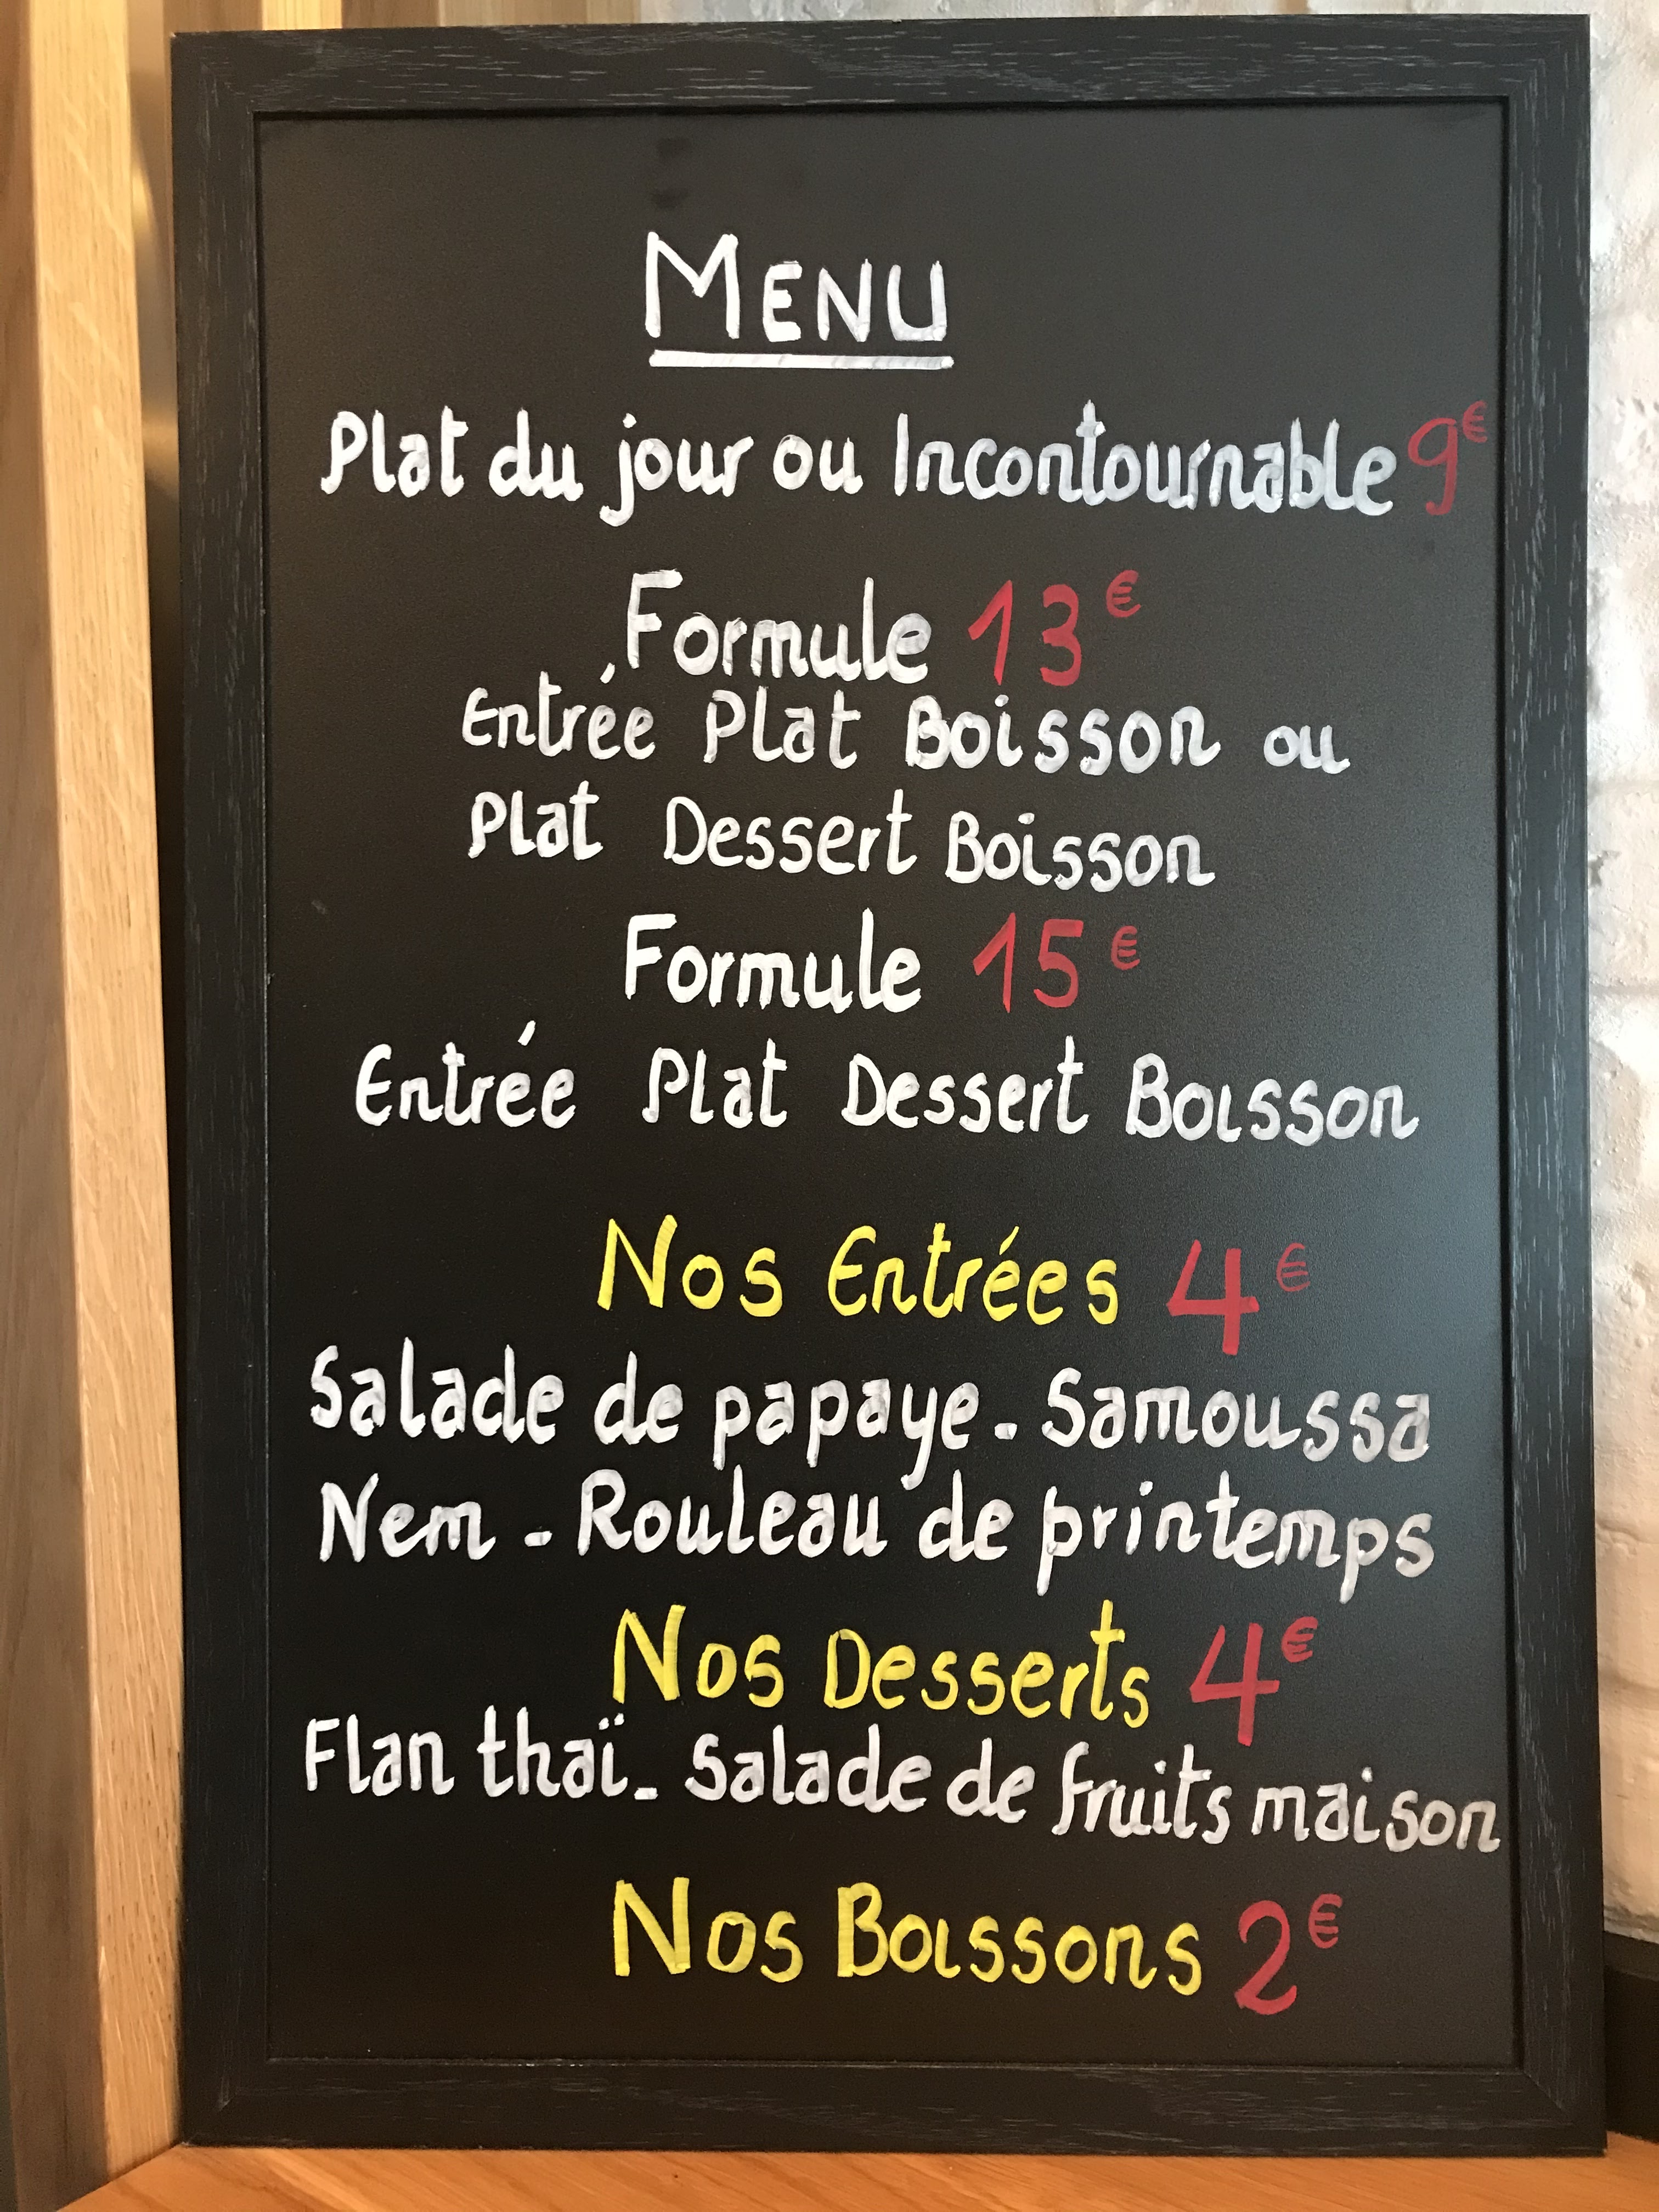 MENU
Plat du jour ou Incontournable 9€
Formule 13€
Entrée Plat Boisson ou
Plat Dessert Boisson
Formule 15€
Entrée Plat Dessert Boisson
Nos Entrées 4€
Salade de papaye - Samoussa
Nem - Rouleau de printemps
Nos Desserts 4€
Flan thaï - Salade de fruits maison
Nos Boissons 2€